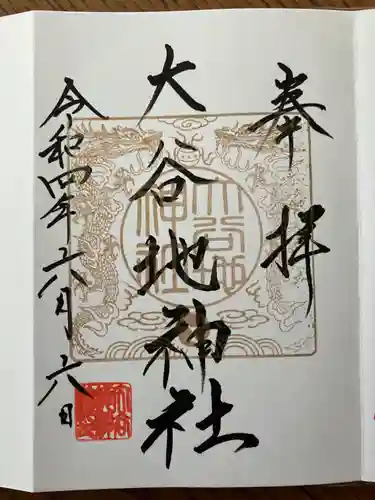 奉拝
大谷地神社
大谷地神社
令和四年六月六日